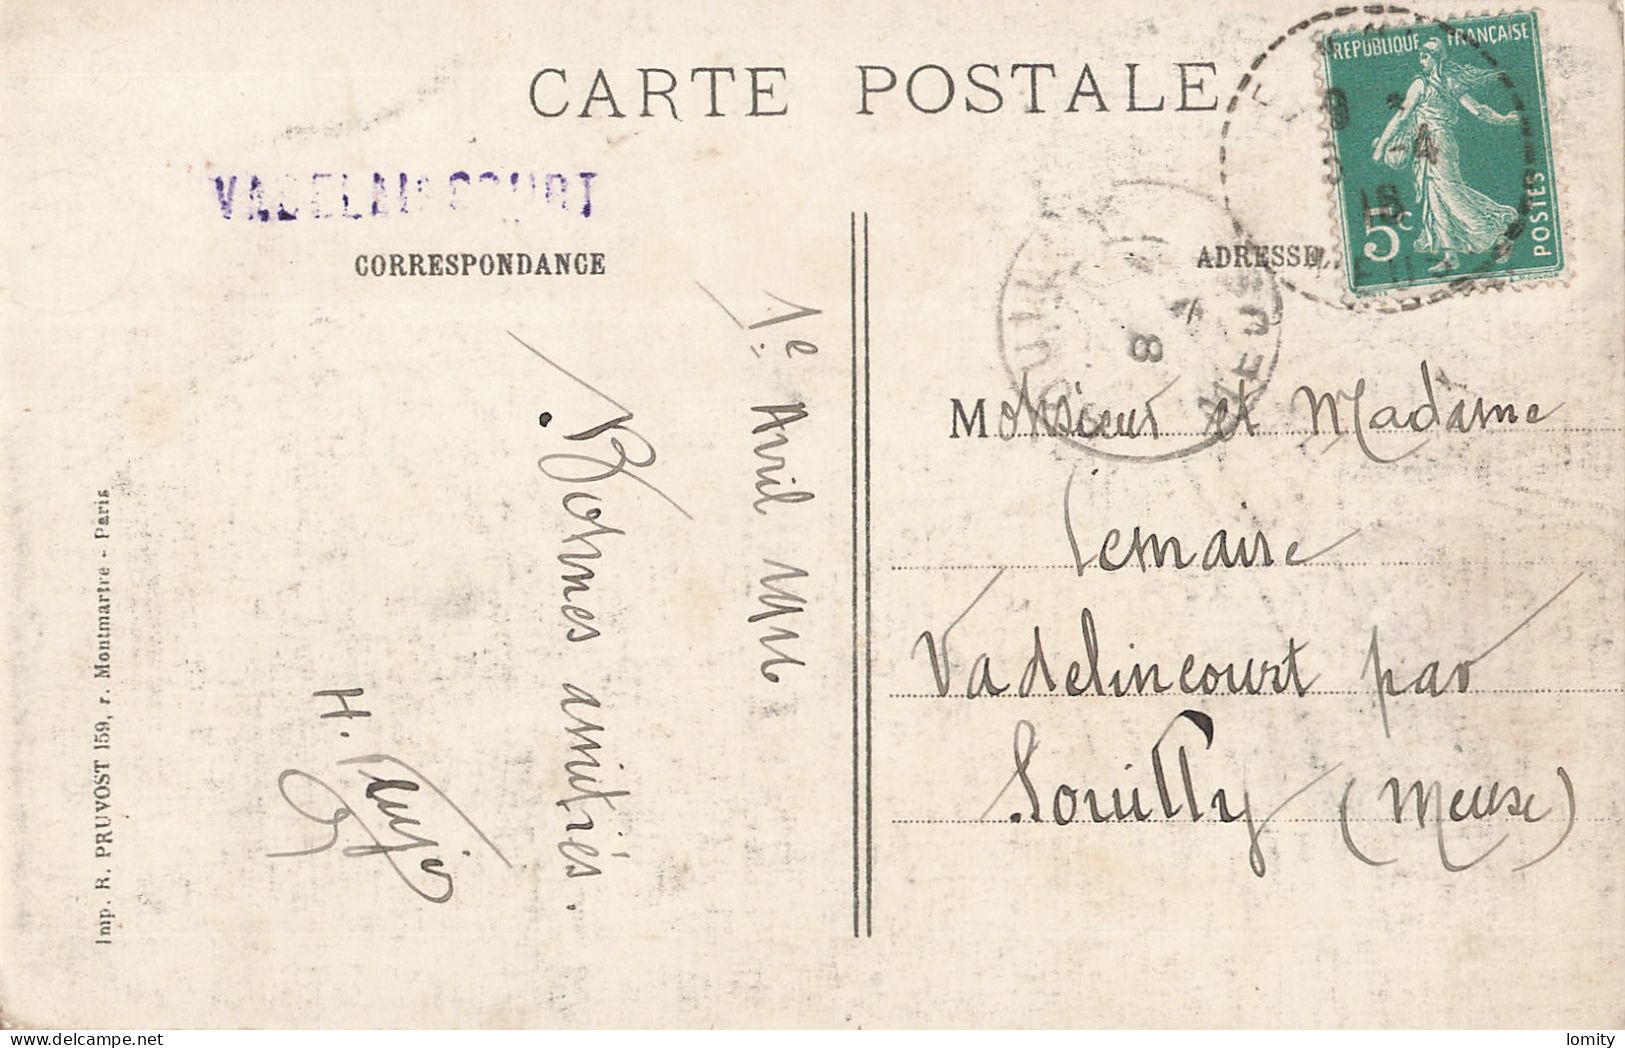 CARTE POSTALE
REPUBLIQUE FRANÇAISE
5c
POSTES
VADELAINCOURT
CORRESPONDANCE
ADRESSE
1e Avril
Bonnes amitiés.
H.
Monsieur et Madame
Lemaire
Vadelincourt par
Souilly (Meuse)
8
4
MEUSE
9
-4
Imp. R. PRUVOST 159, r. Montmartre - Paris
lomity